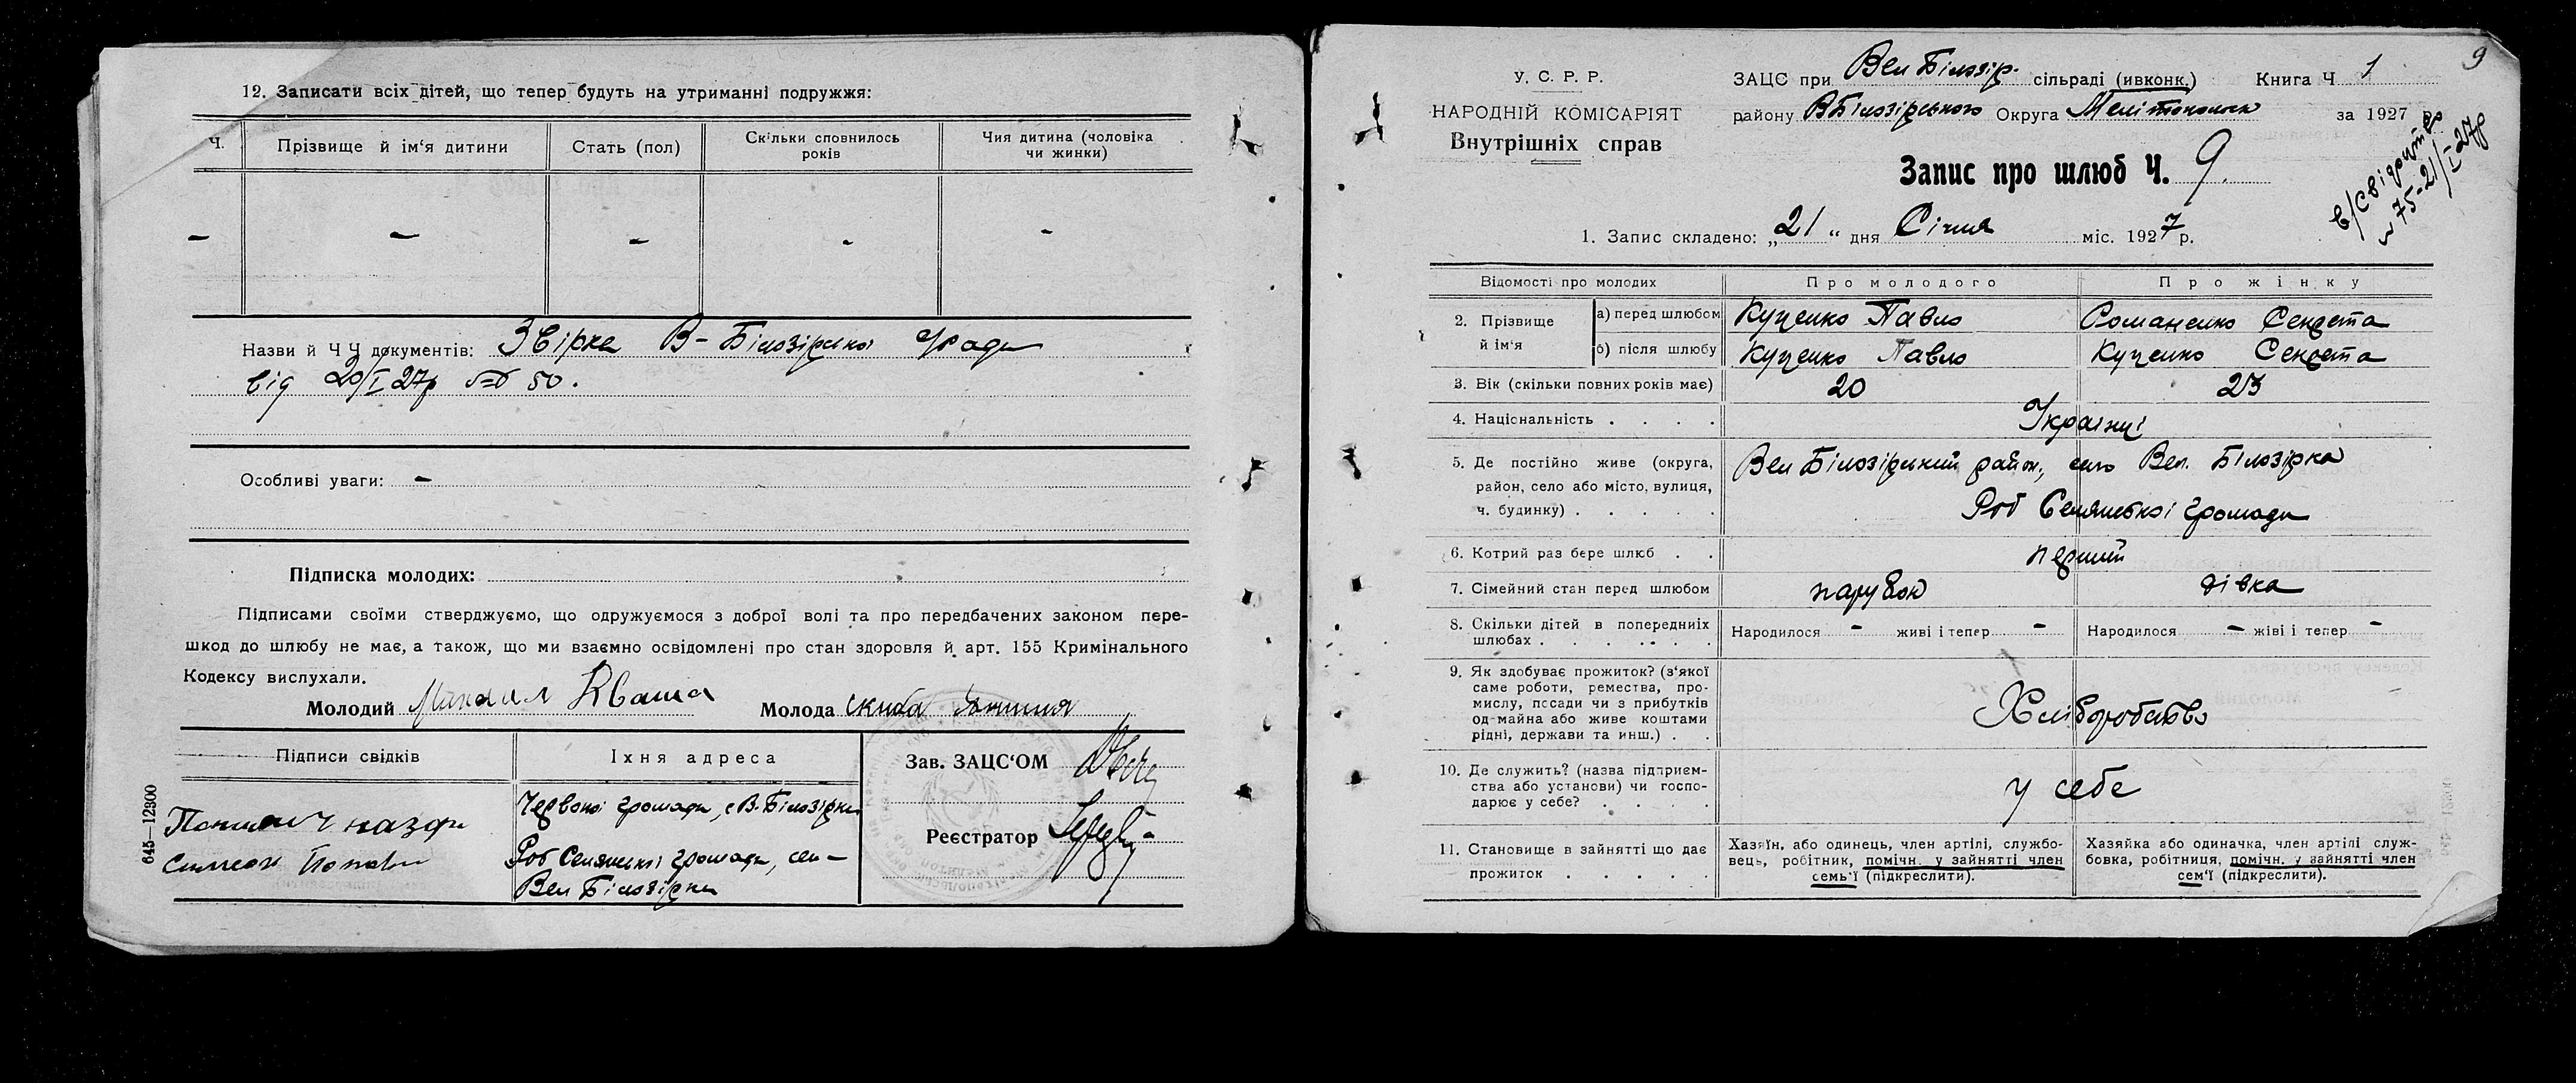 12. Записати всіх дітей, що тепер будуть на утриманні подружжя:
Ч. Прізвище й ім'я дитини Стать (пол) Скільки сповнилось років Чия дитина (чоловіка чи жинки)
- - - - -
Назви й ЧЧ документів: Звірка В-Білозірської
від 20/I 27р № 50.
Особливі уваги: -
Підписка молодих:
Підписами своїми стверджуємо, що одружуємося з доброї волі та про передбачених законом пере-
шкод до шлюбу не має, а також, що ми взаємно освідомлені про стан здоровля й арт. 155 Кримінального
Кодексу вислухали.
Молодий Михаил Кваша Молода скиба
Підписи свідків Їхня адреса Зав. ЗАЦС'ОМ
Червоної громади, с В. Білозірки
Реєстратор
Роб Селянської громади, сел-
Вел Білозірки
645—12300
9
У. С. Р. Р.
НАРОДНІЙ КОМІСАРІЯТ
Внутрішніх справ
ЗАЦС при Вел Білозір. сільраді (ивконк.) Книга Ч 1
району ВБілозірського Округа Мелітопольск за 1927 р.
Запис про шлюб Ч. 9.
№ 75-21/I 27р
1. Запис складено: „21“ дня Січня міс. 1927 р.
Відомості про молодих Про молодого Про жінку
2. Прізвище й ім'я а) перед шлюбом Куценко Павло Романенко
б) після шлюбу Куценко Павло Куценко
3. Вік (скільки повних років має) 20 23
4. Національність . . . . Українці
5. Де постійно живе (округа, район, село або місто, вулиця, ч. будинку) . . . . . Вел Білозірський район, село Вел. Білозірка
Роб Селянської громади
6. Котрий раз бере шлюб . . перший
7. Сімейний стан перед шлюбом парубок дівка
8. Скільки дітей в попередніх шлюбах . . . . . . . Народилося - живі і тепер - Народилося - жіві і тепер -
9. Як здобуває прожиток? (з'якої саме роботи, ремества, про-мислу, посади чи з прибутків од-майна або живе коштами рідні, держави та инш.) . . Хліборобство
10. Де служить? (назва підприєм-ства або установи) чи госпо-дарює у себе? . . . . у себе
11. Становище в зайнятті що дає прожиток . . . . . Хазяїн, або одинець, член артілі, службо-вець, робітник, помічн. у зайнятті член семь'ї (підкреслити). Хазяйка або одиначка, член артілі служ-бовка, робітниця, помічн. у зайнятті член сем'ї (підкреслити).